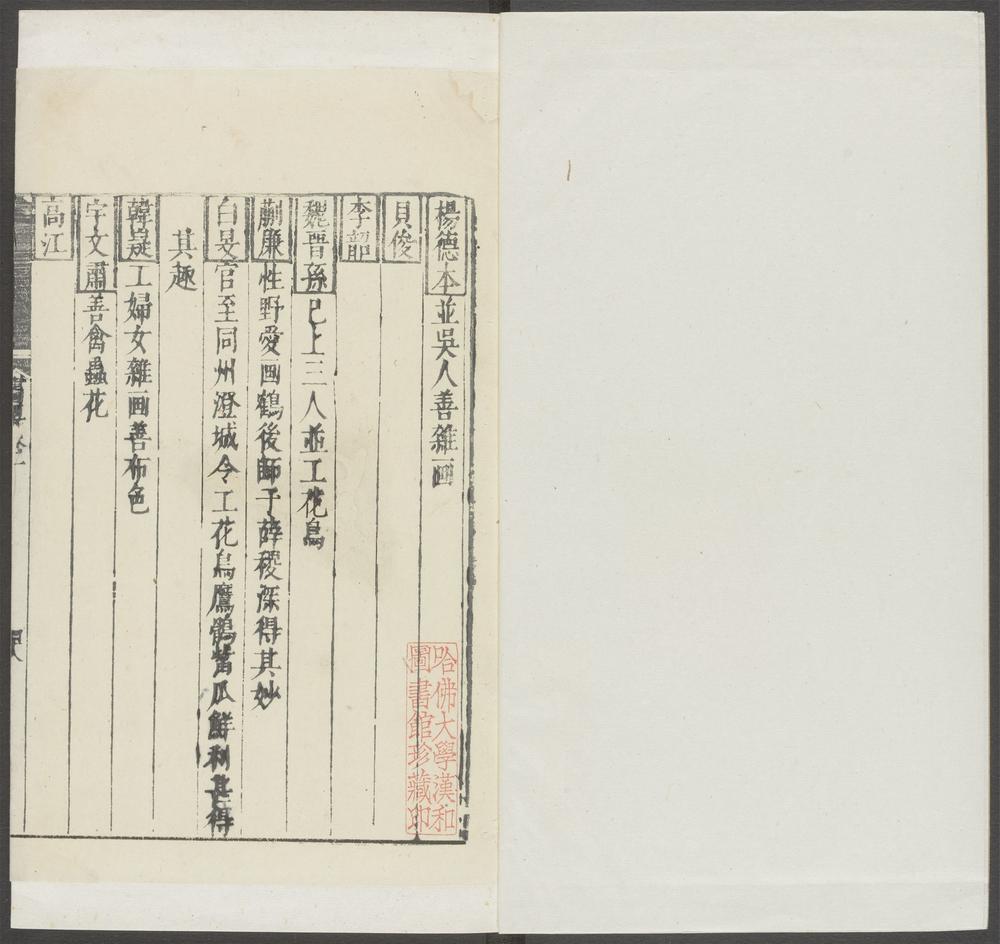 楊德本並吳人善雜画
貝俊
李韶
魏晉孫已上三人並工花鳥
蒯廉性野愛画鶴後師于薛稷深得其妙
白旻官至同州澄城令工花鳥鷹鶻觜爪鮮利甚得
其趣
韓嶷工婦女雜画善布色
宇文肅善禽蟲花
高江
哈佛大學漢和
圖書館珍藏印